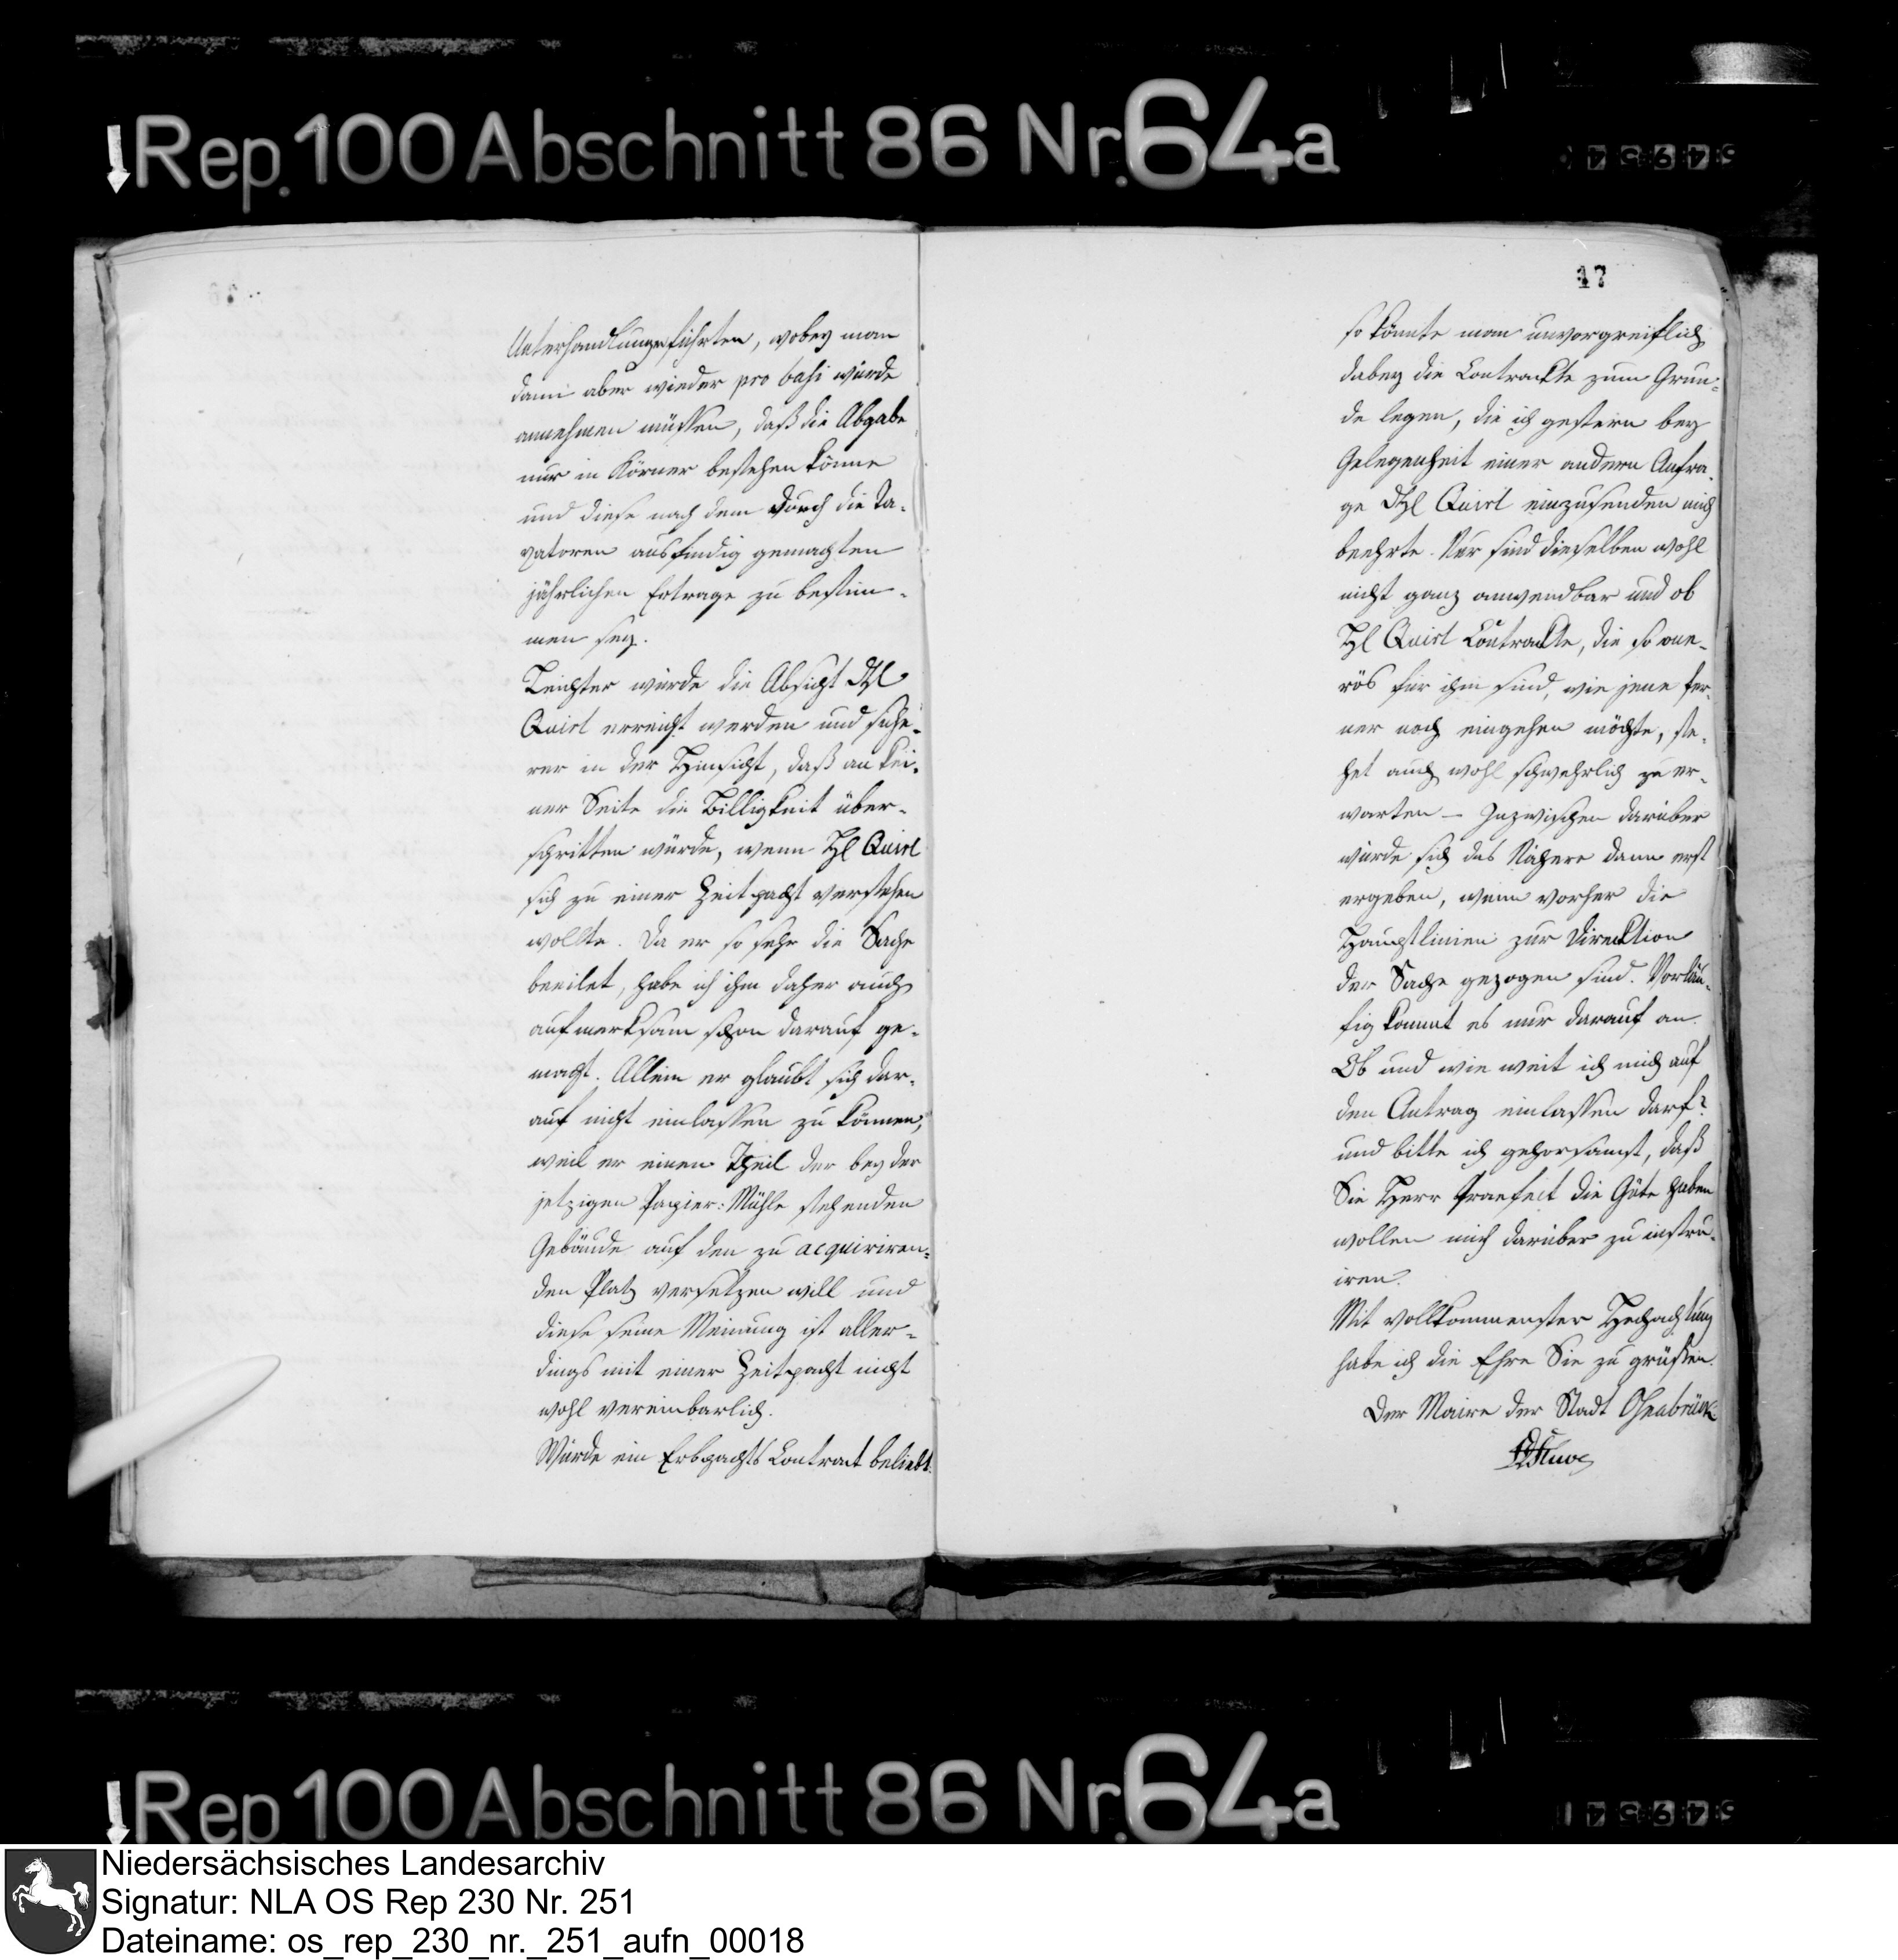 Rep. 100 Abschnitt 86 Nr. 64a
Unterhandlungen führten, wobey man
dann aber wieder pro basi würde
annehmen müssen, daß die Abgabe
nur in Körner bestehen könne
und diese nach dem durch die Ta-
xatoren ausfindig gemachten
jährlichen Ertrage zu bestim-
men sey.
Leichter würde die Absicht
Quirl erreicht werden und siche-
rer in der Hinsicht, daß an kei-
ner Seite die Billigkeit über-
schritten würde, wenn Hl Quirl
sich zu einer Zeitpacht verstehen
wollte. Da er so sehr die Sache
beeilet, habe ich ihm daher auch
aufmerksam schon darauf ge-
macht. Allein er glaubt sich dar-
auf nicht einlassen zu können,
weil er einen Theil der bey der
jetzigen Papier-Mühle stehenden
Gebäude auf den zu acquiriren-
den Platz versetzen will und
diese seine Meinung ist aller-
dings mit einer Zeitpacht nicht
wohl vereinbarlich.
Würde ein Erbpachts Contract beliebt
17
so könnte man unvorgreiflich
dabey die Contrackte zum Grun-
de legen, die ich gestern bey
Gelegenheit einer andern Anfra-
ge Quirl einzusenden mich
beehrte. Nur sind dieselben wohl
nicht ganz anwendbar und ob
Hl Quirl Contrackte, die so one-
rös für ihn sind, wie jene fer-
ner noch eingehen möchte, ste-
het auch wohl schwehrlich zu er-
warten – Inzwischen darüber
würde sich das Nähere dann erst
ergeben, wenn vorher die
Hauptlinien zur Direcktion
der Sache gezogen sind. Vorläu-
fig kommt es nur darauf an.
Ob und wie weit ich mich auf
den Antrag einlassen darf?
und bitte ich gehorsamst, daß
Sie Herr Praefect die Güte haben
wollen mich darüber zu instru-
iren.
Mit vollkommenster Hochachtung
habe ich die Ehre Sie zu grüßen.
Der Maire der Stadt Osnabrück
Stüve
Rep. 100 Abschnitt 86 Nr. 64a
Niedersächsisches Landesarchiv
Signatur: NLA OS Rep 230 Nr. 251
Dateiname: os_rep_230_nr._251_aufn_00018